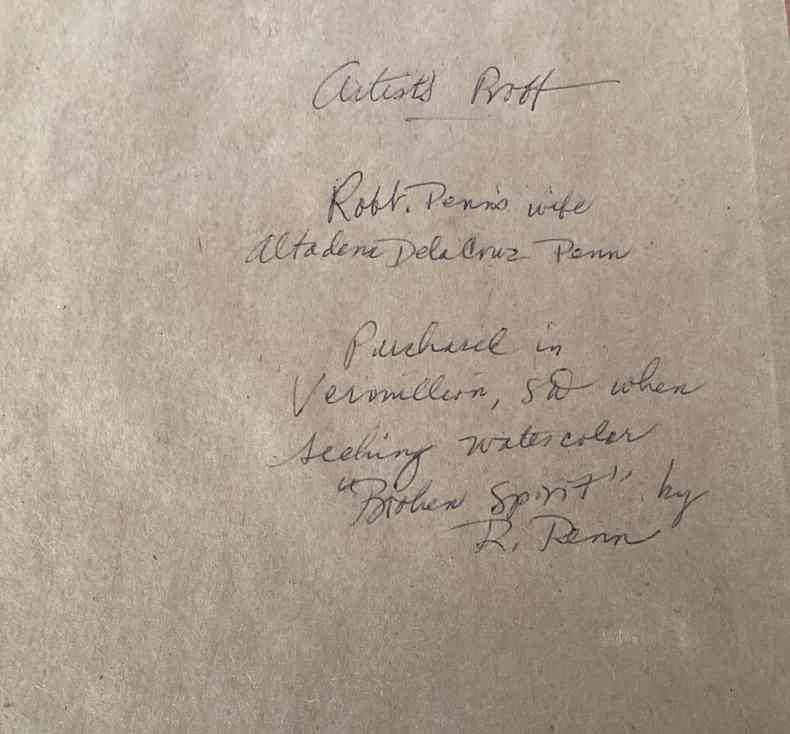 Artist's Proof
Robt. Penn's wife
Altadena DelaCruz Penn
Purchased in
Vermillion, SD when
seeking watercolor
"Broken Spirit" by
R. Penn